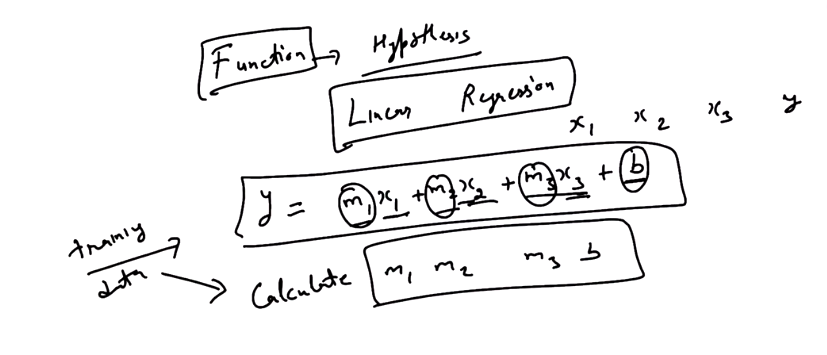 Function → Hypothesis
Linear Regression
x₁ x₂ x₃ y
y = m₁x₁ + m₂x₂ + m₃x₃ + b
training
data → Calculate m₁ m₂ m₃ b